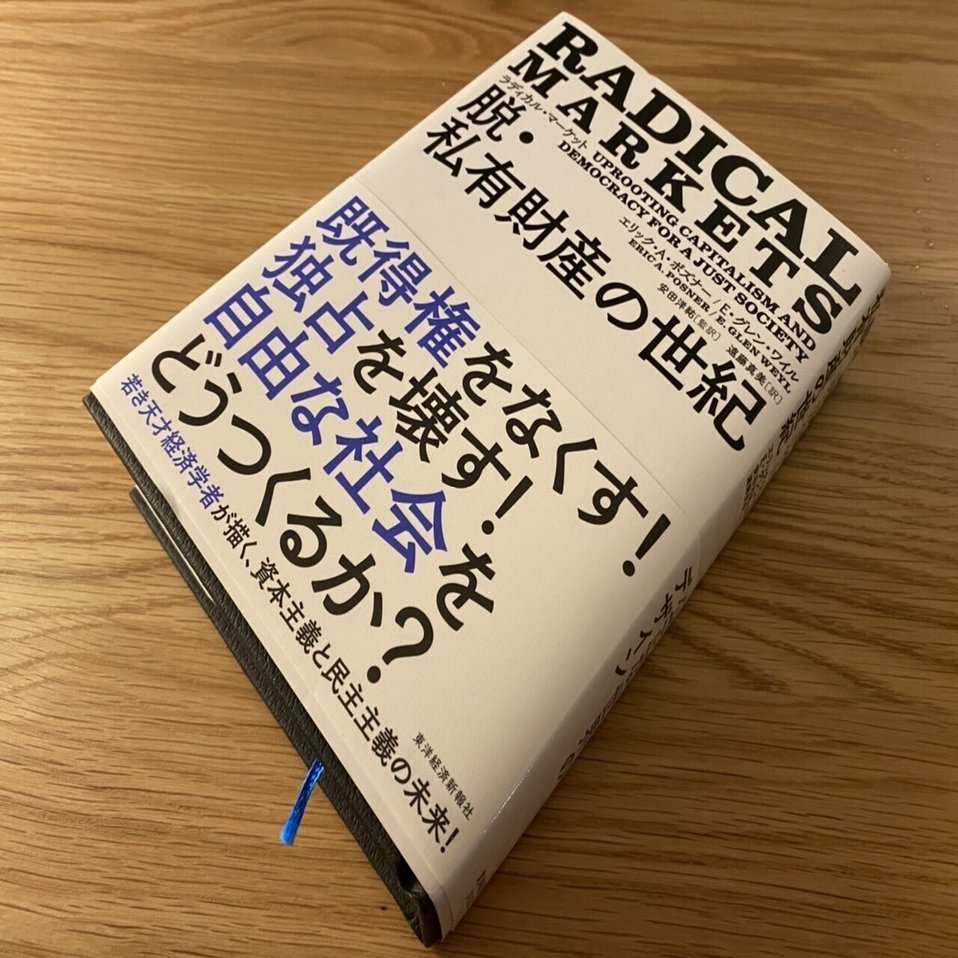 RADICAL
MARKETS
ラディカル・マーケット UPROOTING CAPITALISM AND
DEMOCRACY FOR A JUST SOCIETY
脱・
私有財産の世紀
エリック・A・ポズナー/E・グレン・ワイル
ERIC A. POSNER / E. GLEN WEYL
安田洋祐[監訳] 遠藤真美[訳]
既得権をなくす!
独占を壊す!
自由な社会を
どうつくるか?
若き天才経済学者が描く、資本主義と民主主義の未来!
東洋経済新報社